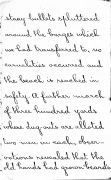 stray bullets spluttered
around the barges which
we had transferred to, no
casualties occurred and
the beach is reached in
safety. A further march
of three hundred yards
where dug-outs are alloted
two men in each, obser-
vations revealed that the
old hands had grown beards